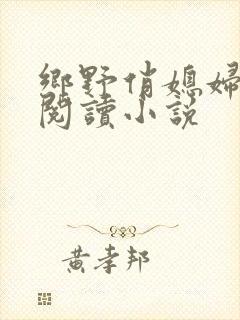 鄉野俏媳婦
閱讀小說
黃孝邦